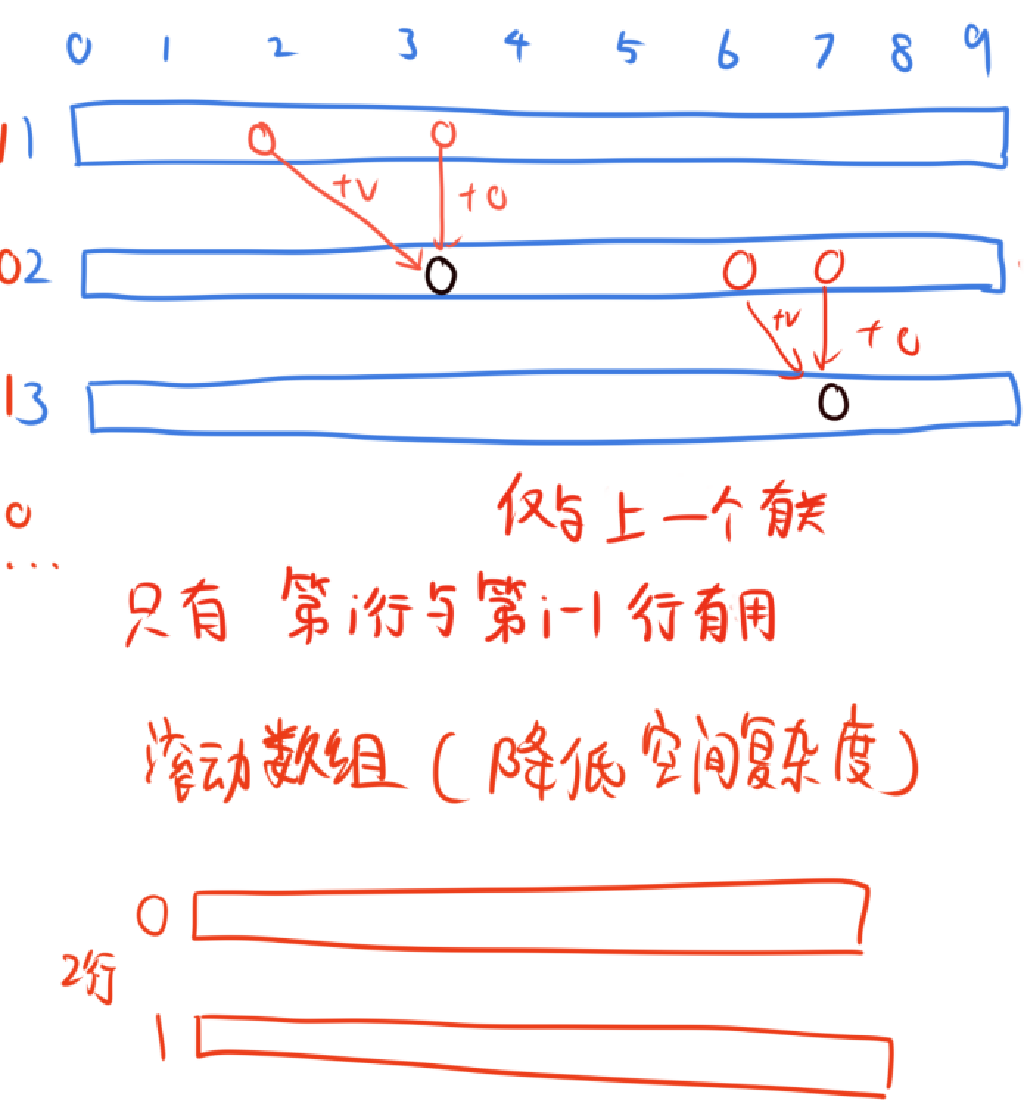 0 1 2 3 4 5 6 7 8 9
1 1
+v +0
0 2
+v +0
1 3
0
...
仅与上一个有关
只有 第i行与第i-1行有用
滚动数组(降低空间复杂度)
0
2行
1